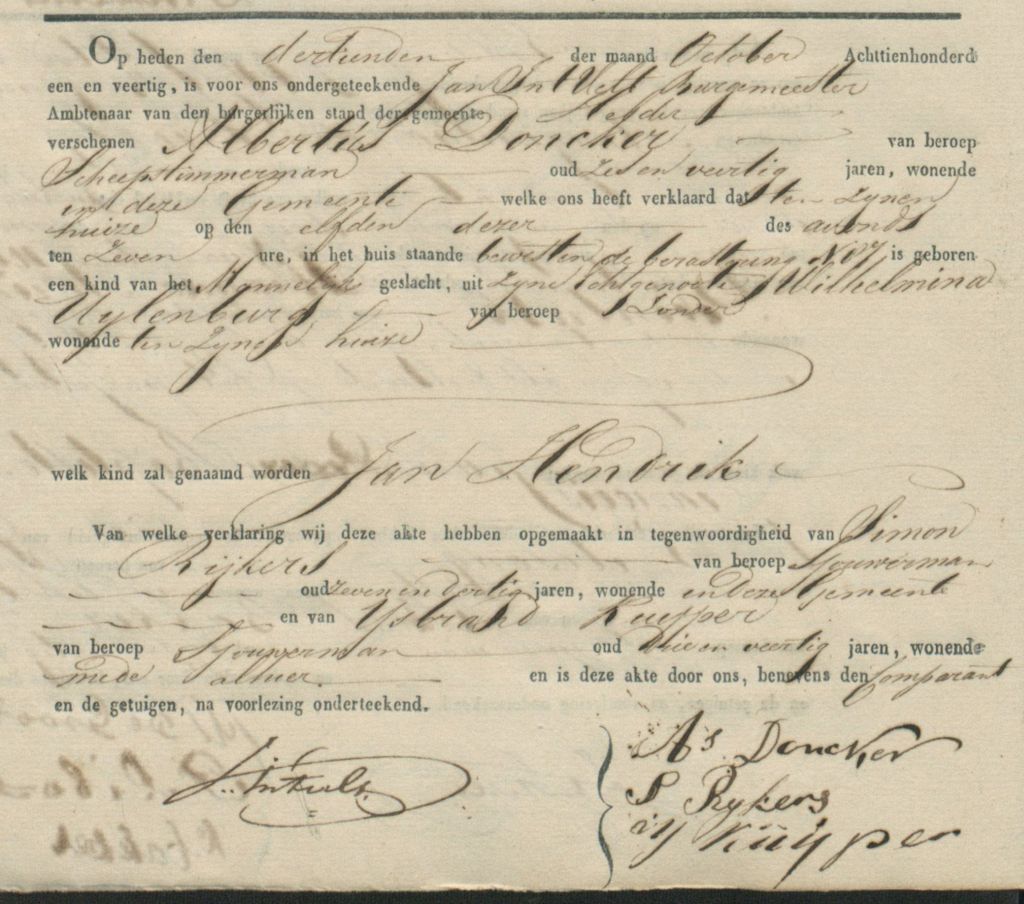 Op heden den dertienden der maand October Achttienhonderd
een en veertig, is voor ons ondergeteekende Jan In 't Velt Burgemeester
Ambtenaar van den burgerlijken stand der gemeente Helder
verschenen Albertús Doncker van beroep
Scheepstimmerman oud Zes en veertig jaren, wonende
in deze Gemeente welke ons heeft verklaard dat ten zijnen
huize op den elfden dezer des avonds
ten Zeven ure, in het huis staande bewesten de bestrating No. is geboren
een kind van het Mannelijk geslacht, uit zijne Echtgenoote Wilhelmina
Uylenburg van beroep Zonder
wonende ten zijnen huize
welk kind zal genaamd worden Jan Hendrik
Van welke verklaring wij deze akte hebben opgemaakt in tegenwoordigheid van Simon
Rijkers van beroep Sjouwerman
oud zeven en dertig jaren, wonende in deze Gemeente
en van Ysbrand Kuijper
van beroep Sjouwerman oud drie en veertig jaren, wonende
mede alhier en is deze akte door ons, benevens den Comparant
en de getuigen, na voorlezing onderteekend.
As. Doncker
S Rijkers
Y Kuijper